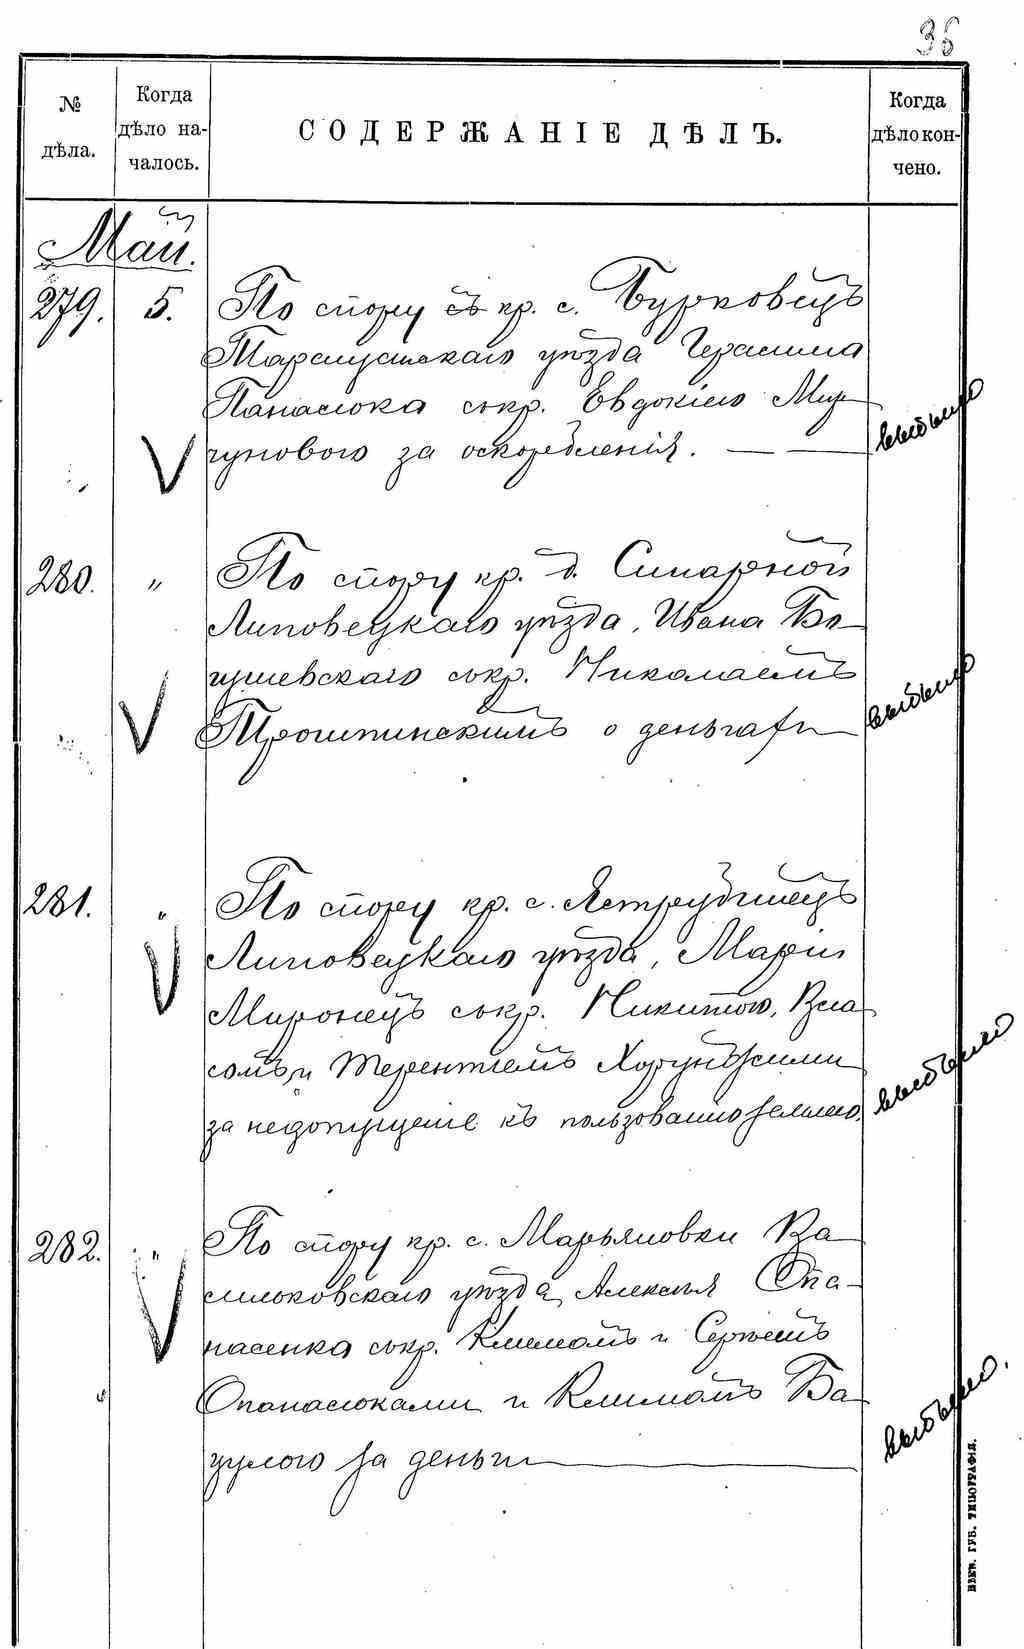 36
№ дѣла.
Когда дѣло началось.
СОДЕРЖАНІЕ ДѢЛЪ.
Когда дѣло кончено.
Май.
279. 5. По спору съ кр. с. Бурковецъ
Таращанскаго уѣзда Герасима
Панасюка съ кр. Евдокіею Мир
гуновою за оскорбленія. — —
выбыло
280. " По спору кр. д. Скипарной
Липовецкаго уѣзда, Ивана Бо-
гушевскаго съ кр. Николаемъ
Трощинскимъ о деньгахъ —
выбыло
281. " По спору кр. с. Яструбинецъ
Липовецкаго уѣзда, Маріи
Миронецъ съ кр. Никитою, Вла
сомъ и Терентіемъ Хорунжими
за недопущеніе къ пользованію землею.
выбыло
282. " По спору кр. с. Марьяновки Ва
сильковскаго уѣзда, Алексѣя Опа-
насенка съ кр. Климомъ и Сергѣемъ
Опанасюками и Климомъ Ба
цулою за деньги —
выбыло.
КІЕВ. ГУБ. ТИПОГРАФІЯ.